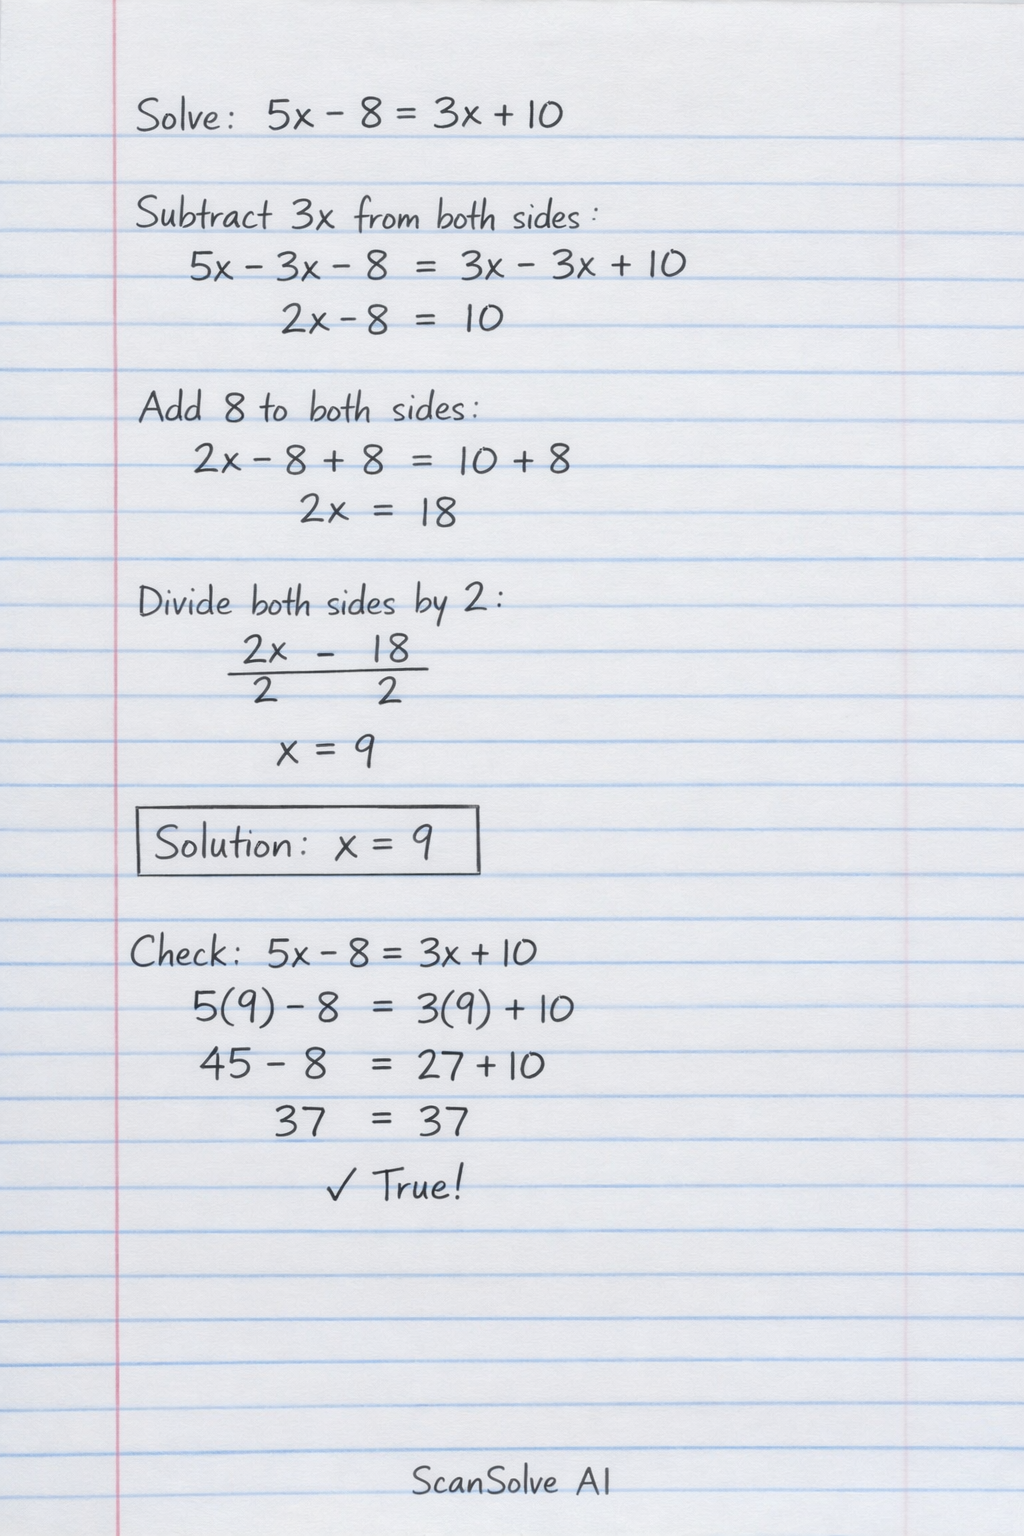 Solve: 5x - 8 = 3x + 10
Subtract 3x from both sides:
5x - 3x - 8 = 3x - 3x + 10
2x - 8 = 10
Add 8 to both sides:
2x - 8 + 8 = 10 + 8
2x = 18
Divide both sides by 2:
2x - 18
2 2
x = 9
Solution: x = 9
Check: 5x - 8 = 3x + 10
5(9) - 8 = 3(9) + 10
45 - 8 = 27 + 10
37 = 37
✓ True!
ScanSolve AI